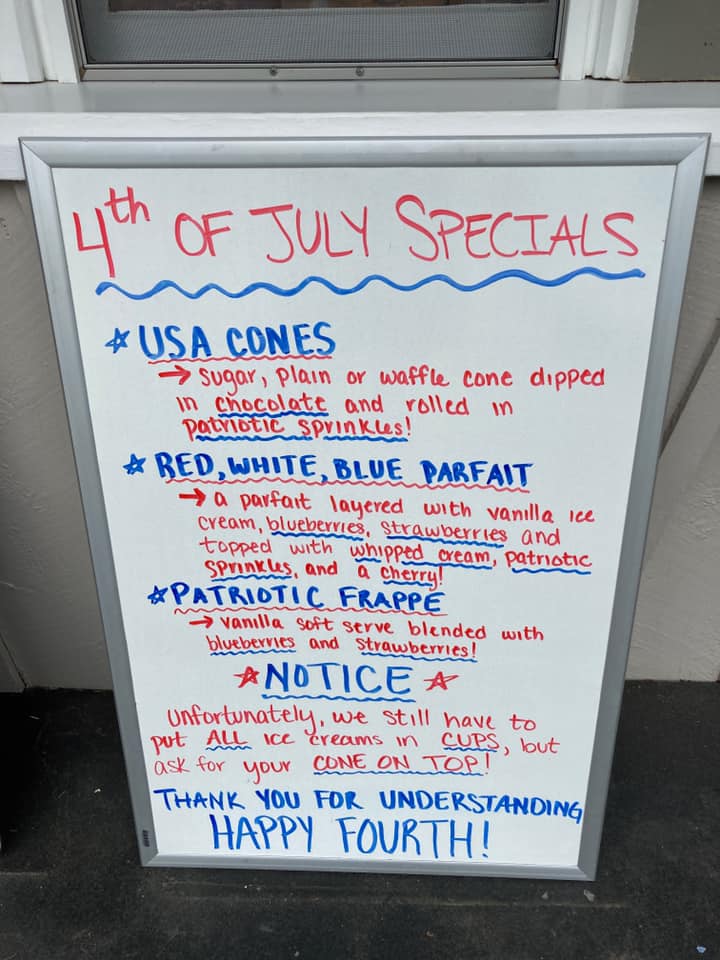 4th OF JULY SPECIALS
USA CONES
→ sugar, plain or waffle cone dipped
in chocolate and rolled in
patriotic sprinkles!
RED, WHITE, BLUE PARFAIT
→ a parfait layered with vanilla ice
cream, blueberries, strawberries and
topped with whipped cream, patriotic
sprinkles, and a cherry!
PATRIOTIC FRAPPE
→ vanilla soft serve blended with
blueberries and strawberries!
NOTICE
Unfortunately, we still have to
put ALL ice creams in CUPS, but
ask for your CONE ON TOP!
THANK YOU FOR UNDERSTANDING
HAPPY FOURTH!